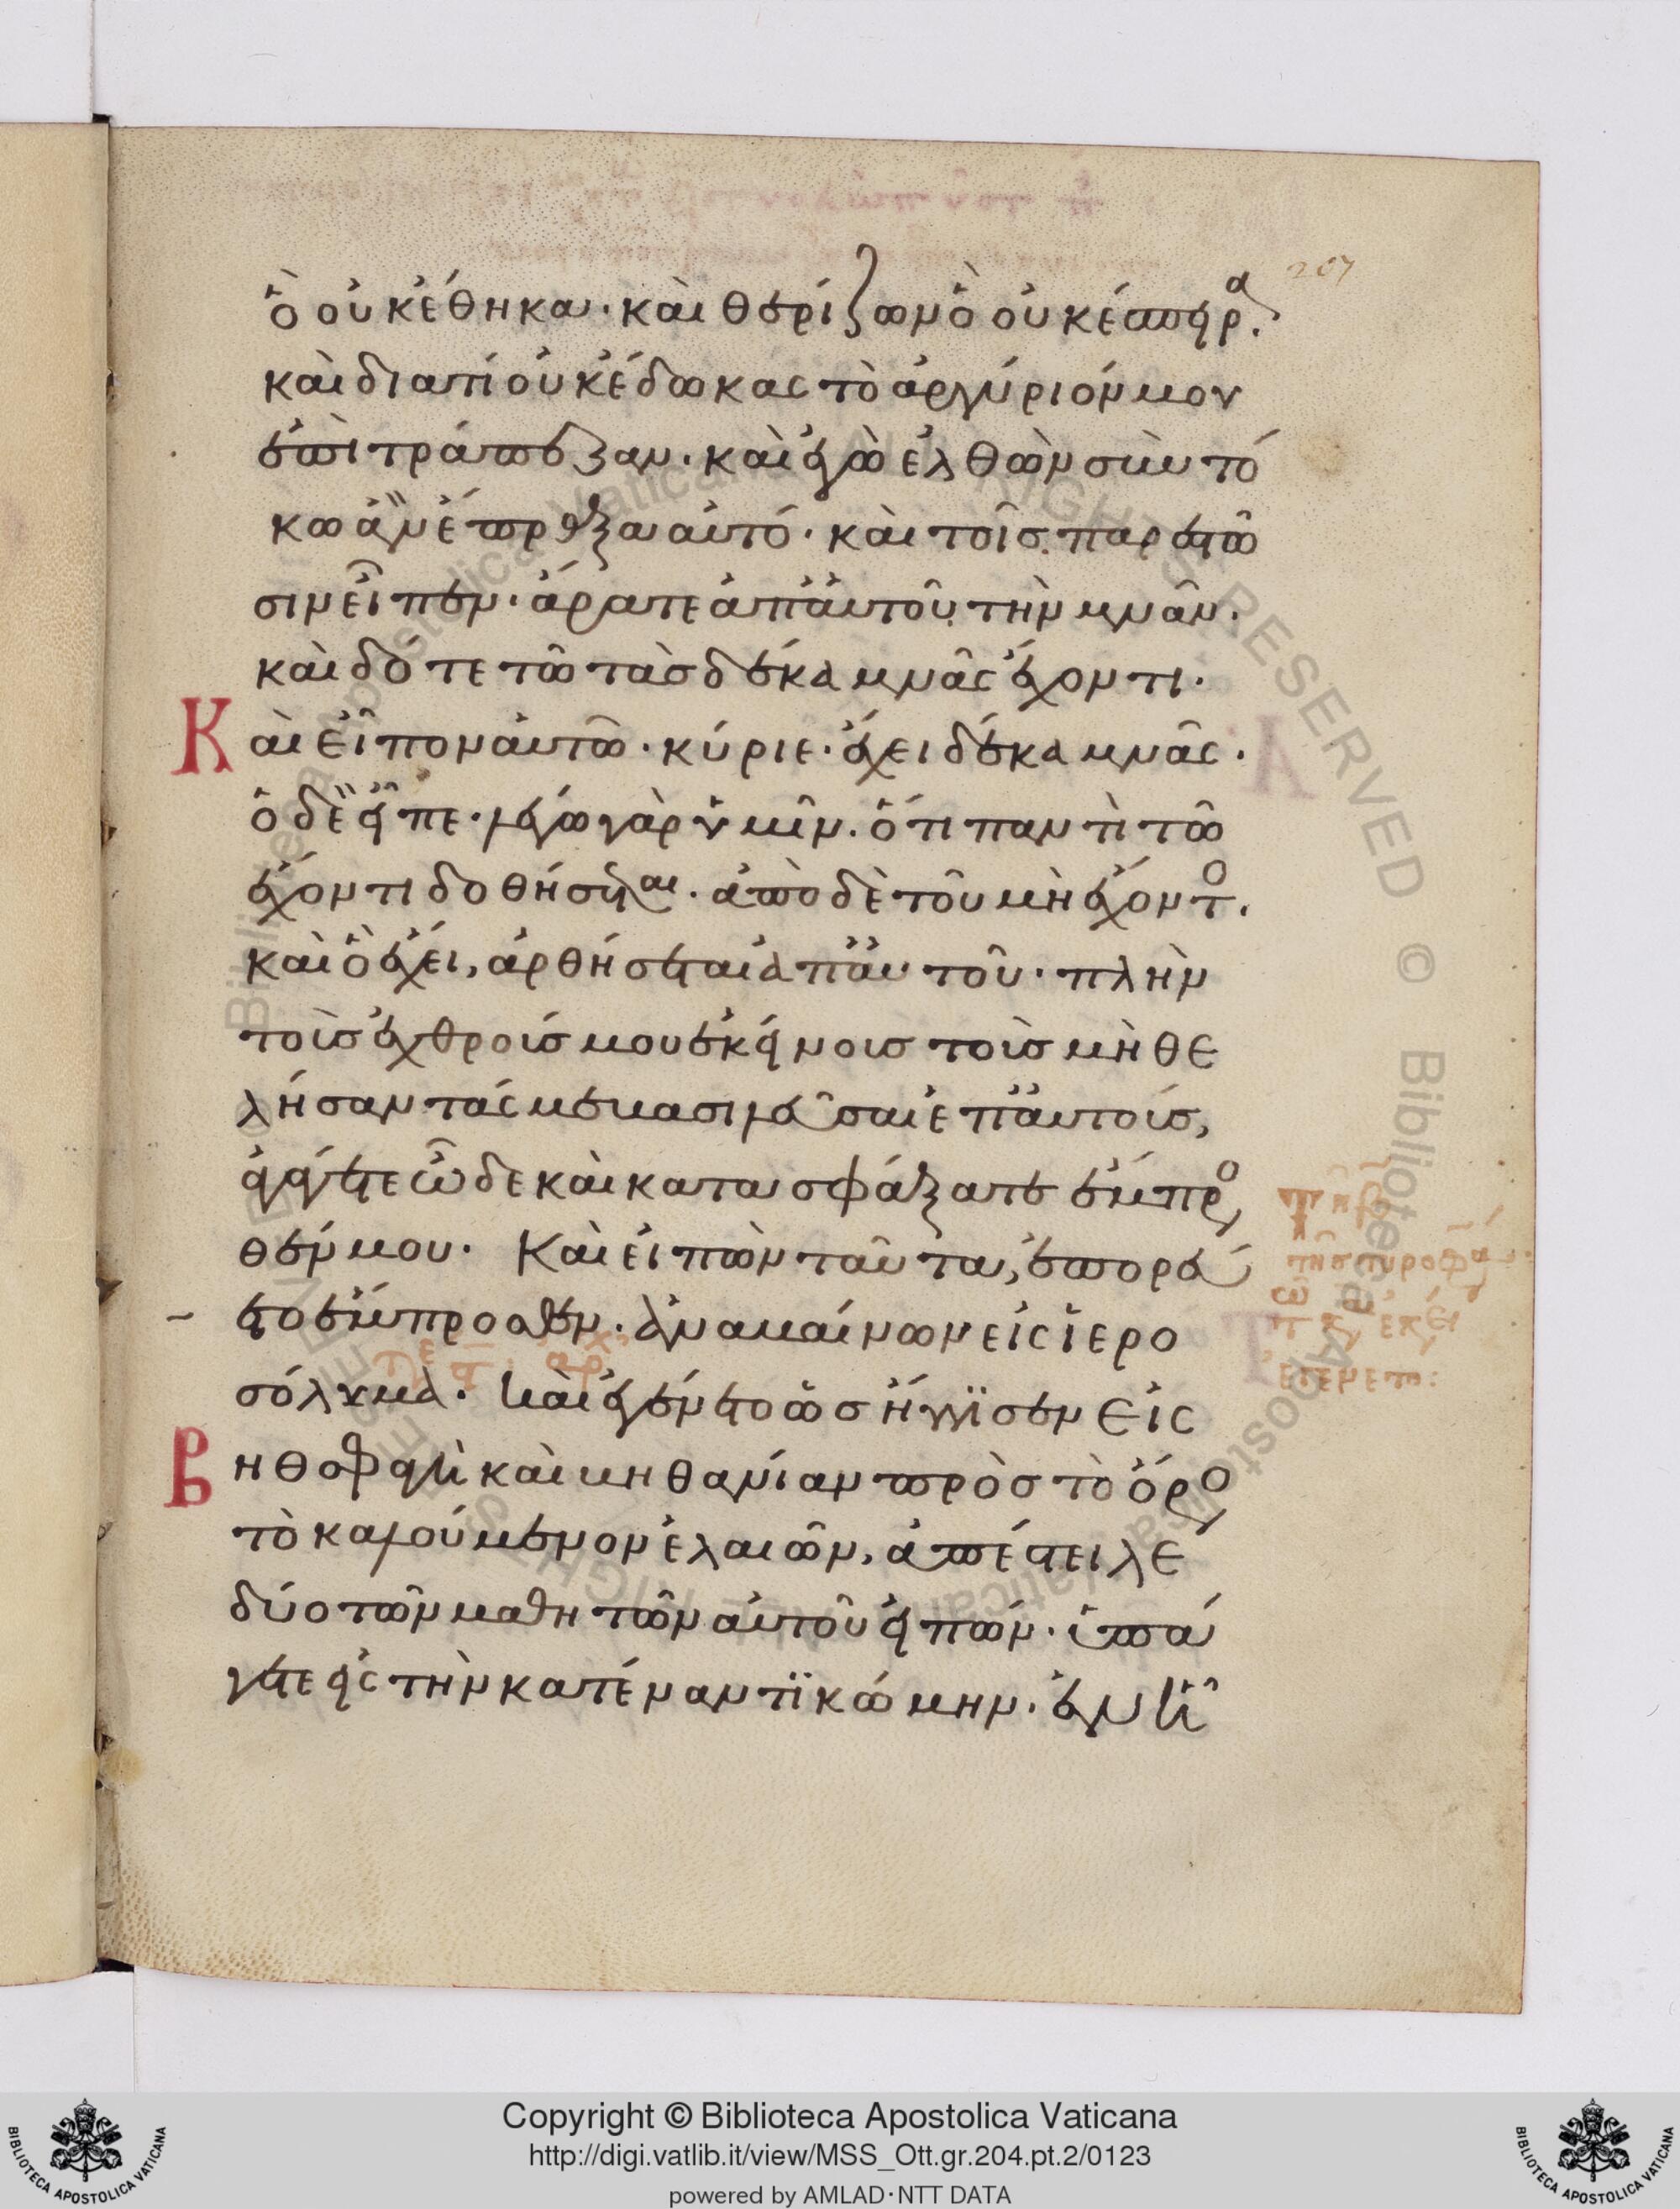 207
ὃ οὐκ ἔθηκα· καὶ θερίζων ὃ οὐκ ἔσπειρα.
καὶ διατί οὐκ ἔδωκας τὸ ἀργύριόν μου
ἐπὶ τράπεζαν· καὶ ἐγὼ ἐλθὼν σὺν τό
κω ἂν ἔπραξα αὐτό· καὶ τοῖς παρεστῶ
σιν εἶπεν· ἄρατε ἀπ' αὐτοῦ τὴν μνᾶν.
καὶ δότε τῶ τὰς δέκα μνᾶς ἔχοντι·
Καὶ εἶπον αὐτῶ· κύριε· ἔχει δέκα μνᾶς·
ὁ δὲ εἶπε· λέγω γὰρ ὑμῖν. ὅτι παντὶ τῶ
ἔχοντι δοθήσεται· ἀπὸ δὲ τοῦ μὴ ἔχοντο.
καὶ ὃ ἔχει, ἀρθήσεται ἀπ' αὐτοῦ· πλὴν
τοὺς ἐχθρούς μου ἐκείνους τοὺς μὴ θε
λήσαντάς με βασιλεῦσαι ἐπ' αὐτούς,
ἀγάγετε ὧδε καὶ κατασφάξατε ἔμπρο
θέν μου. Καὶ εἰπὼν ταῦτα, ἐπορεύ
ετο ἔμπροσθεν. ἀναβαίνων εἰς ἱερο
σόλυμα. καὶ ἐγένετο ὡς ἤγγισεν εἰς
Βηθσφαγὴ καὶ βηθανίαν πρὸς τὸ ὄρο
τὸ καλούμενον ἐλαιῶν, ἀπέστειλε
δύο τῶν μαθητῶν αὐτοῦ εἰπών· ὑπά
γετε εἰς τὴν κατέναντι κώμην· ἐν ἧ
Copyright © Biblioteca Apostolica Vaticana
http://digi.vatlib.it/view/MSS_Ott.gr.204.pt.2/0123
powered by AMLAD·NTT DATA
BIBLIOTECA APOSTOLICA VATICANA
BIBLIOTECA APOSTOLICA VATICANA